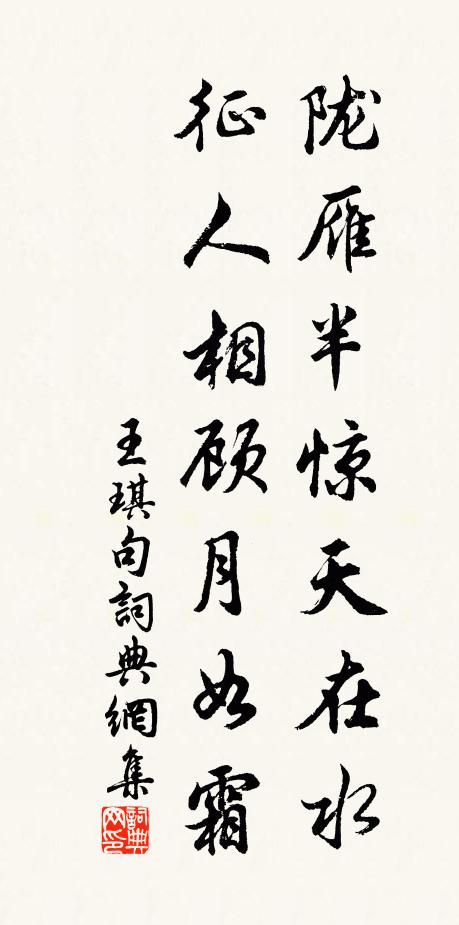 陇雁半惊天在水
征人相顾月如霜
王琪句詞典網集
詞典
网印